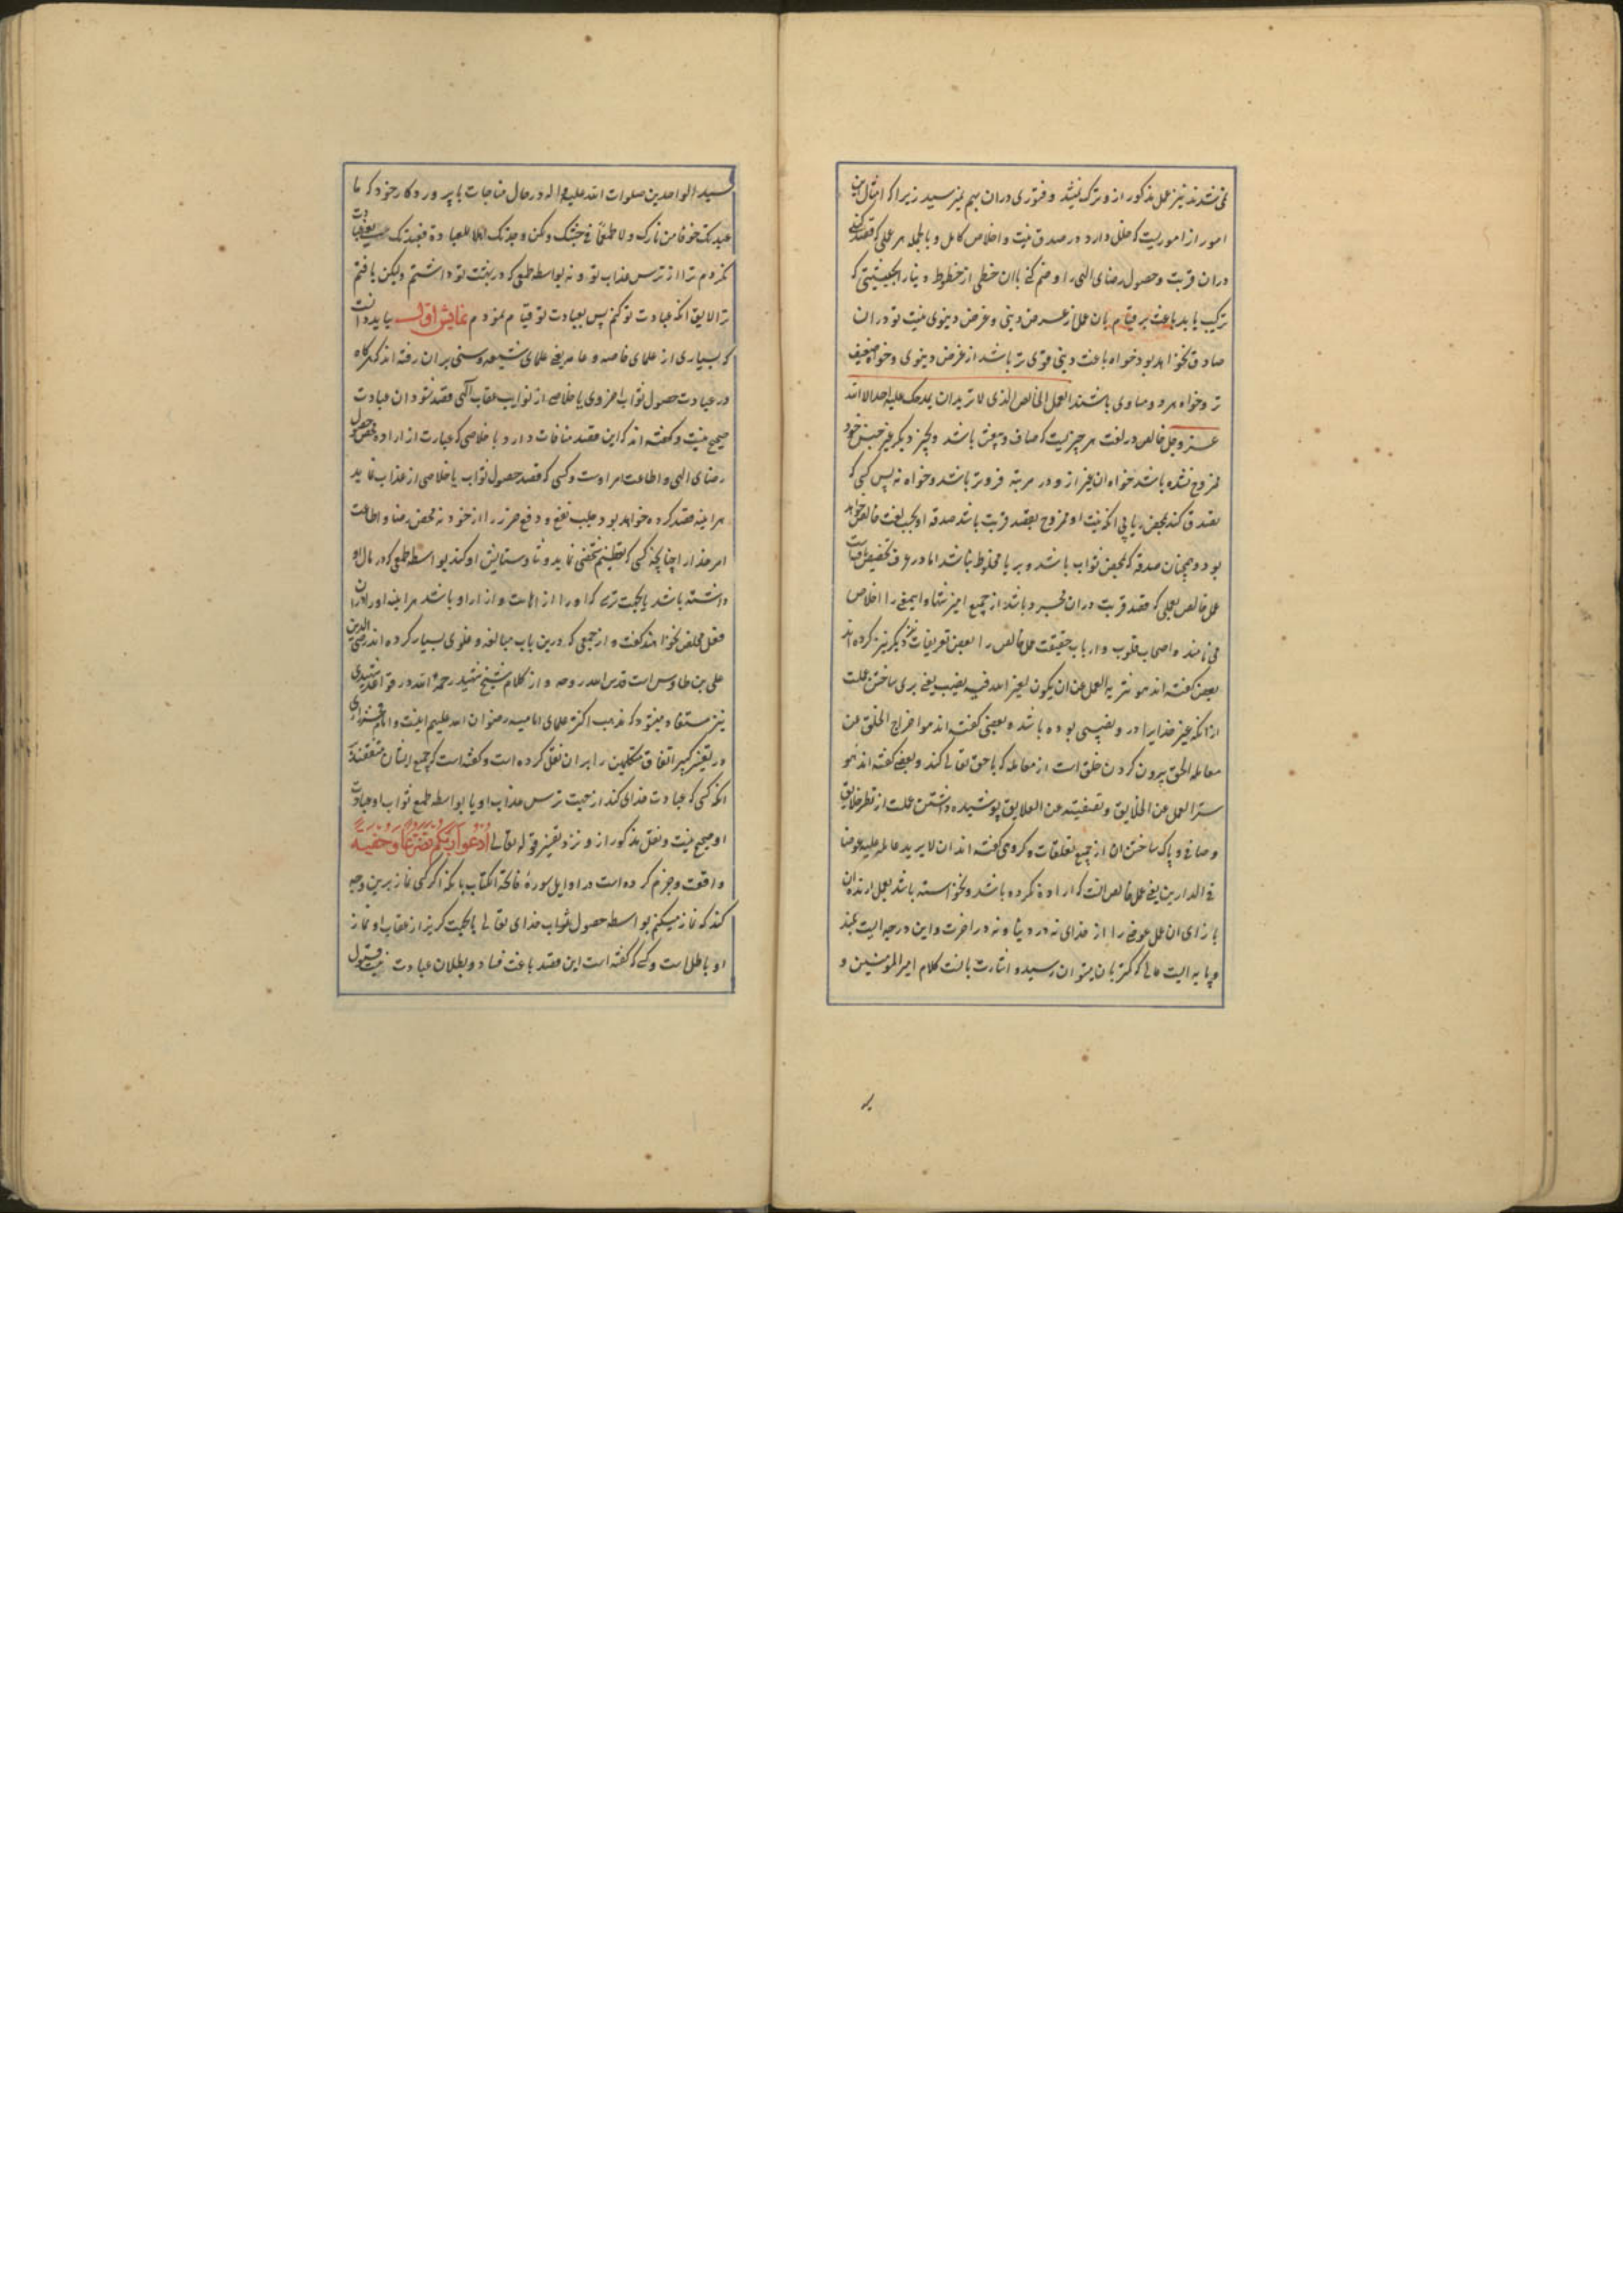 نمی‌شدند نیز عمل مذکور ازو ترک نمیشد و فتوری دران بهم نمیرسید زیرا که امثال این
امور از اموریست که خلل دارد در صدق نیت و اخلاص کامل و بالجمله هر عملی که قصد کنی
دران قربت و حصول رضای الهی را و ضم کنی باان حظی از حظوظ دنیا را بحیثیتی که
ترکیب یابد باعث بر قیام بان عمل از غرض دینی و غرض دینوی نیت تو دران
صادق نخواهد بود خواه باعث دینی قوی تر باشد از غرض دینوی و خواه ضعیف
تر و خواه هر دو مساوی باشند العمل الخالص الذی لا ترید ان یمدحک علیه احد الا الله
عز و جل خالص در لغت هر چیزیست که صاف و بیغش باشد و بچیز دیگر غیر جنس خود
ممزوج نشده باشد خواه ان غیر ازو در مرتبه فروتر باشد و خواه نه پس کسی که
تصدق کند بمحض ریا بی انکه نیت او ممزوج بقصد قربت باشد صدقه او بحسب لغت خالص خواهد
بود و همچنان صدقه که بمحض ثواب باشد و بریا مخلوط نباشد اما در عرف تخصیص یافته است
عمل خالص بعملی که قصد قربت دران مجرد باشد از جمیع امیزشها و اینمعنی را اخلاص
می نامند و اصحاب قلوب و ارباب حقیقت عمل خالص را بعضی تعریفات دیگر نیز کرده اند
بعضی گفته اند هو تنزیه العمل عن ان یکون لغیر الله فیه نصیب یعنی بری ساختن عملست
از انکه غیر خدایرا درو نصیبی بوده باشد و بعضی گفته اند هو اخراج الخلق عن
معامله الحق بیرون کردن خلق است از معامله که با حق تعالی کند و بعضی گفته اند هو
ستر العمل عن الخلایق و تصفیته عن العلایق پوشیده داشتن عملست از نظر خلایق
و صافی و پاک ساختن ان از جمیع تعلقات و گروهی گفته اند ان لا یرید عامله علیه عوضا
فی الدارین یعنی عمل خالص انست که اراده نکرده باشد و نخواسته باشد بعمل ارنده ان
بازای ان عمل عوضی را از خدای نه در دنیا و نه در اخرت و این درجه ایست بلند
و پایه ایست عالی که کمتر بان میتوان رسید و اشارت بانست کلام امیر المومنین و
سید الواحدین صلوات الله علیه و اله در حال مناجات با پروردگار خود که ما
عبدتک خوفا من نارک و لا طمعا فی جنتک و لکن وجدتک اهلا للعبادة فعبدتک یعنی عبادت
نکردم ترا از ترس عذاب تو و نه بواسطه طمعی که در بهشت تو داشتم و لیکن یافتم
ترا لایق انکه عبادت تو کنم پس بعبادت تو قیام نمودم نمایش اول بباید دانست
که بسیاری از علمای خاصه و عامه یعنی علمای شیعه و سنی بران رفته اند که هرگاه
در عبادت حصول ثواب اخروی یا خلاصی از نوایب عقاب الهی قصد شود ان عبادت
صحیح نیست و گفته اند که این قصد منافات دارد با خلاصی که عبارت از اراده محض حصول
رضای الهی و اطاعت امر اوست و کسی که قصد حصول ثواب یا خلاصی از عذاب نماید
هراینه قصد کرده خواهد بود جلب نفع و دفع ضرر را از خود نه محض رضا و اطاعت
امر خدا را چنانچه کسی که تعظیم شخصی نماید و ثنا و ستایش او کند بواسطه طمعی که در مال او
داشته باشد یا بجهت ترسی که او را از اهانت و ازار او باشد هراینه او را دران
فعل مخلص نخواهند گفت و از جمعی که درین باب مبالغه و غلوی بسیار کرده اند رضی الدین
علی بن طاوس است قدس الله روحه و از کلام شیخ شهید رحمه الله در قواعد
نیز مستفاد میشود که مذهب اکثر علمای امامیه رضوان الله علیهم اینست و امام فخر رازی
در تفسیر کبیر اتفاق متکلمین را بران نقل کرده است و گفته است که جمیع ایشان متفقند بر
انکه کسی که عبادت خدای کند از جهت ترس عذاب او یا بواسطه طمع ثواب او عبادت
او صحیح نیست و نقل مذکور ازو نزد تفسیر قوله تعالی ادعوا ربکم تضرعا و خفیة
واقعست و جزم کرده است در اوایل سوره فاتحة الکتاب بانکه اگر کسی نماز برین وجه
کند که نماز میکنم بواسطه حصول ثواب خدای تعالی یا بجهت گریز از عقاب او نماز
او باطل است و کسی که گفته است این قصد باعث فساد و بطلان عبادت نیست